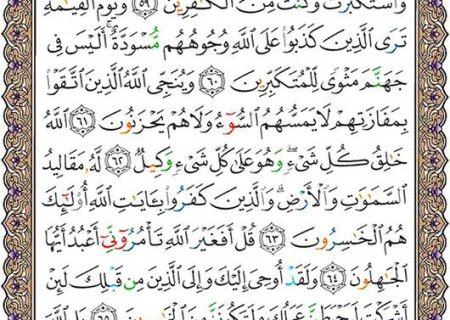 وَٱسْتَكْبَرْتَ وَكُنتَ مِنَ ٱلْكَٰفِرِينَ ٥٩ وَيَوْمَ ٱلْقِيَٰمَةِ
تَرَى ٱلَّذِينَ كَذَبُوا۟ عَلَى ٱللَّهِ وُجُوهُهُم مُّسْوَدَّةٌ ۚ أَلَيْسَ فِى
جَهَنَّمَ مَثْوًى لِّلْمُتَكَبِّرِينَ ٦٠ وَيُنَجِّى ٱللَّهُ ٱلَّذِينَ ٱتَّقَوْا۟
بِمَفَازَتِهِمْ لَا يَمَسُّهُمُ ٱلسُّوٓءُ وَلَا هُمْ يَحْزَنُونَ ٦١ ٱللَّهُ
خَٰلِقُ كُلِّ شَىْءٍ ۖ وَهُوَ عَلَىٰ كُلِّ شَىْءٍ وَكِيلٌ ٦٢ لَّهُۥ مَقَالِيدُ
ٱلسَّمَٰوَٰتِ وَٱلْأَرْضِ ۗ وَٱلَّذِينَ كَفَرُوا۟ بِـَٔايَٰتِ ٱللَّهِ أُو۟لَٰٓئِكَ
هُمُ ٱلْخَٰسِرُونَ ٦٣ قُلْ أَفَغَيْرَ ٱللَّهِ تَأْمُرُوٓنِّىٓ أَعْبُدُ أَيُّهَا
ٱلْجَٰهِلُونَ ٦٤ وَلَقَدْ أُوحِىَ إِلَيْكَ وَإِلَى ٱلَّذِينَ مِن قَبْلِكَ لَئِنْ
أَشْرَكْتَ لَيَحْبَطَنَّ عَمَلُكَ وَلَتَكُونَنَّ مِنَ ٱلْخَٰسِرِينَ ٦٥ بَلِ ٱللَّهَ